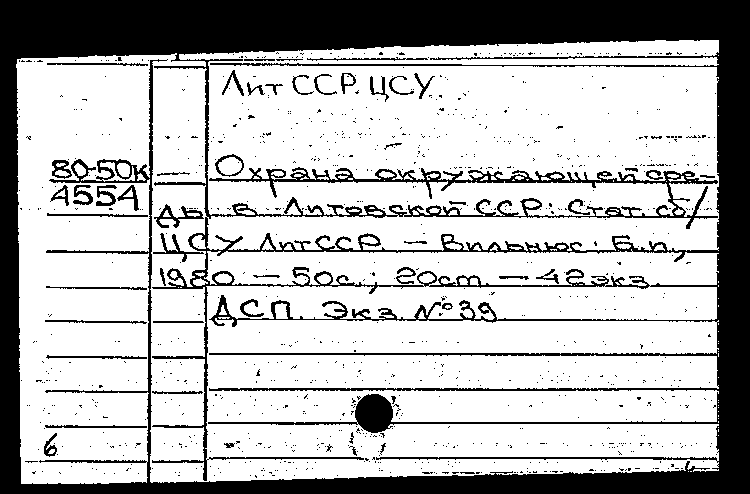 Лит ССР. ЦСУ.
80-50к — Охрана окружающей сре-
4554
ды в Литовской ССР: Стат. сб/
ЦСУ ЛитССР. — Вильнюс: Б.и.,
1980 — 50с.; 20см. — 42экз.
ДСП. Экз. №39
6